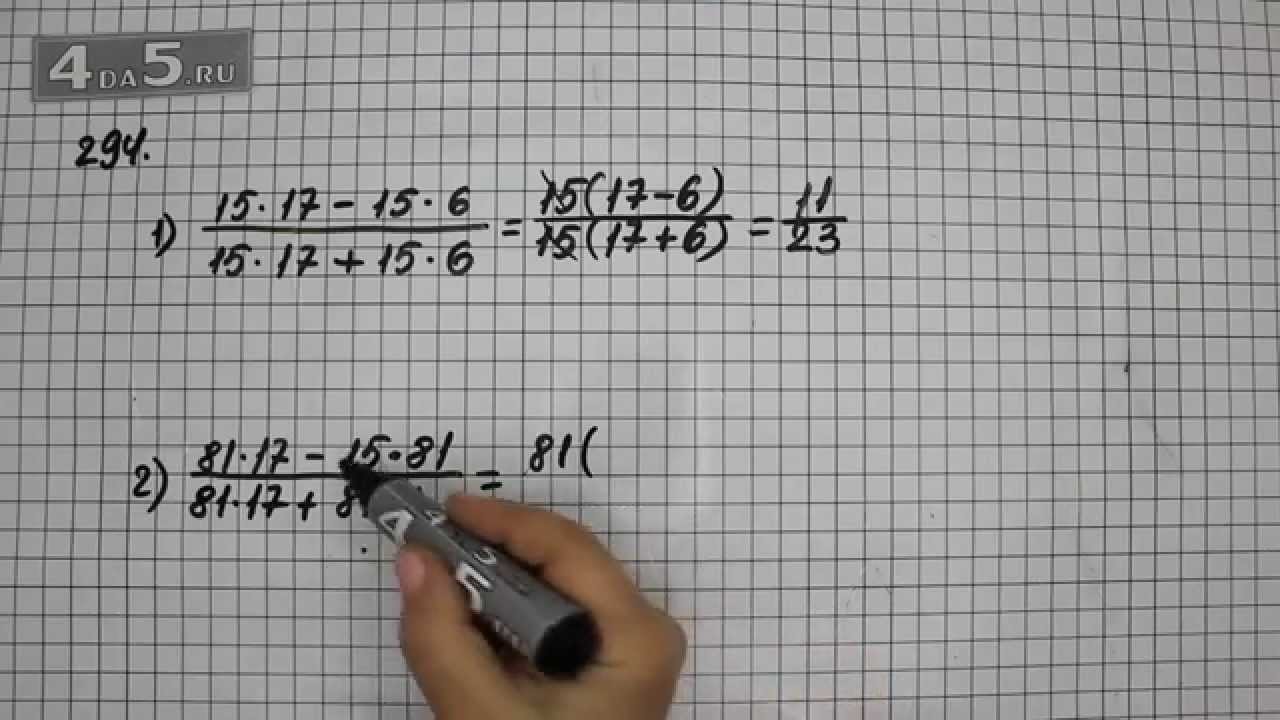 4DA5.RU
294.
1) \frac{15·17-15·6}{15·17+15·6} = \frac{15(17-6)}{15(17+6)} = \frac{11}{23}
2) \frac{81·17-15·81}{81·17+8} = 81(
4 5